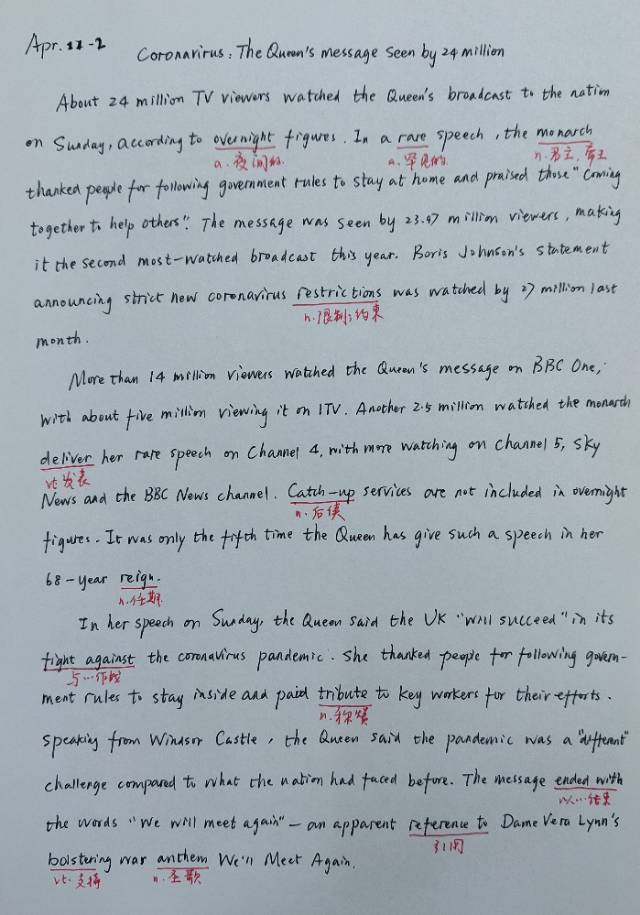 Apr. 11-2 Coronavirus: The Queen's message seen by 24 million
About 24 million TV viewers watched the Queen's broadcast to the nation
on Sunday, according to overnight figures. In a rare speech, the monarch
a. 夜间的 a. 罕见的 n. 君主, 帝王
thanked people for following government rules to stay at home and praised those "coming
together to help others". The message was seen by 23.97 million viewers, making
it the second most-watched broadcast this year. Boris Johnson's statement
announcing strict new coronavirus restrictions was watched by 27 million last
n. 限制; 约束
month.
More than 14 million viewers watched the Queen's message on BBC One,
with about five million viewing it on ITV. Another 2.5 million watched the monarch
deliver her rare speech on Channel 4, with more watching on Channel 5, Sky
vt 发表
News and the BBC News channel. Catch-up services are not included in overnight
n. 后续
figures. It was only the fifth time the Queen has give such a speech in her
68-year reign.
n. 任期
In her speech on Sunday, the Queen said the UK "will succeed" in its
fight against the coronavirus pandemic. She thanked people for following govern-
与…作战
ment rules to stay inside and paid tribute to key workers for their efforts.
n. 称赞
Speaking from Windsor Castle, the Queen said the pandemic was a "different"
challenge compared to what the nation had faced before. The message ended with
以…结束
the words "We will meet again" — an apparent reference to Dame Vera Lynn's
引用
bolstering war anthem We'll Meet Again.
vt. 支持 n. 圣歌